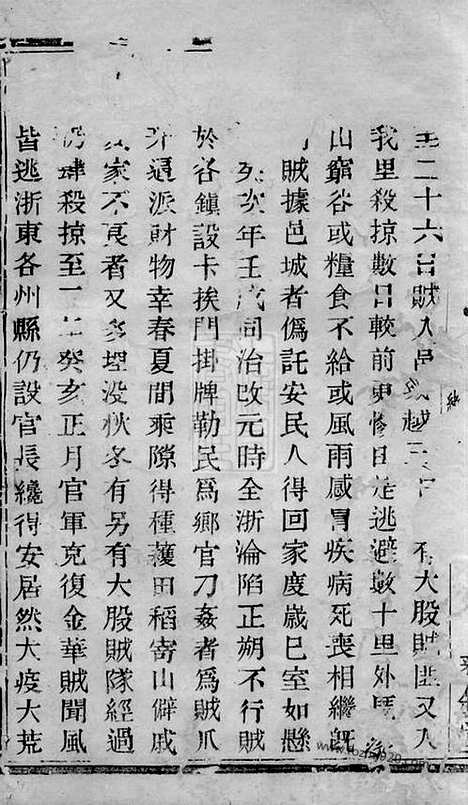 二十六日賊入邑越三日有大股賊匪又入
我里殺掠數日較前更慘由是逃避數十里外馬
山窮谷或糧食不給或風雨感冒疾病死喪相繼旣
賊據邑城者僞託安民人得回家度歲已室如懸
次年壬戌同治改元時全浙淪陷正朔不行賊
於各鎮設卡挨門掛牌勒民爲鄉官刀姦者爲賊爪
牙逼派財物幸春夏間乘隙得種穫田稻寄山僻戚
家不良者又多埋没秋冬有另有大股賊隊經過
仍肆殺掠至二年癸亥正月官軍克復金華賊聞風
皆逃浙東各州縣仍設官長纔得安居然大疫大荒